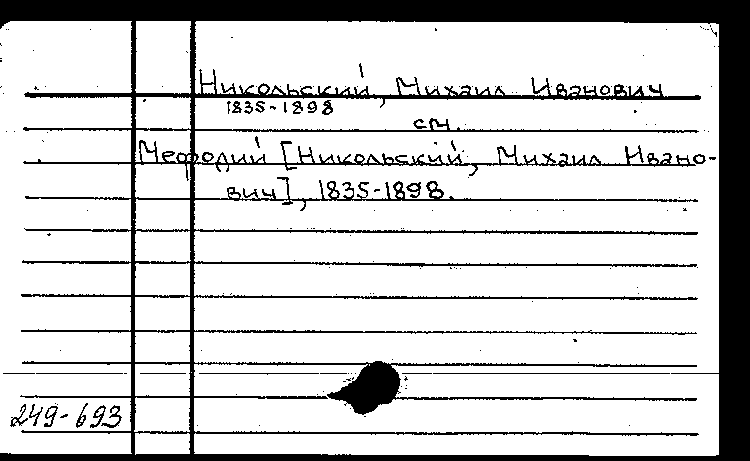 Никольский, Михаил Иванович
1835-1898
см.
Мефодий [Никольский, Михаил Ивано-
вич], 1835-1898.
249-693